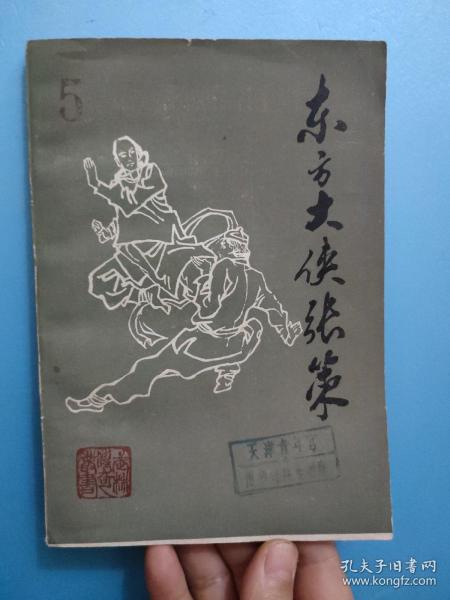 5
东方大侠张策
武林
传奇
丛书
孔夫子旧书网
www.kongfz.com